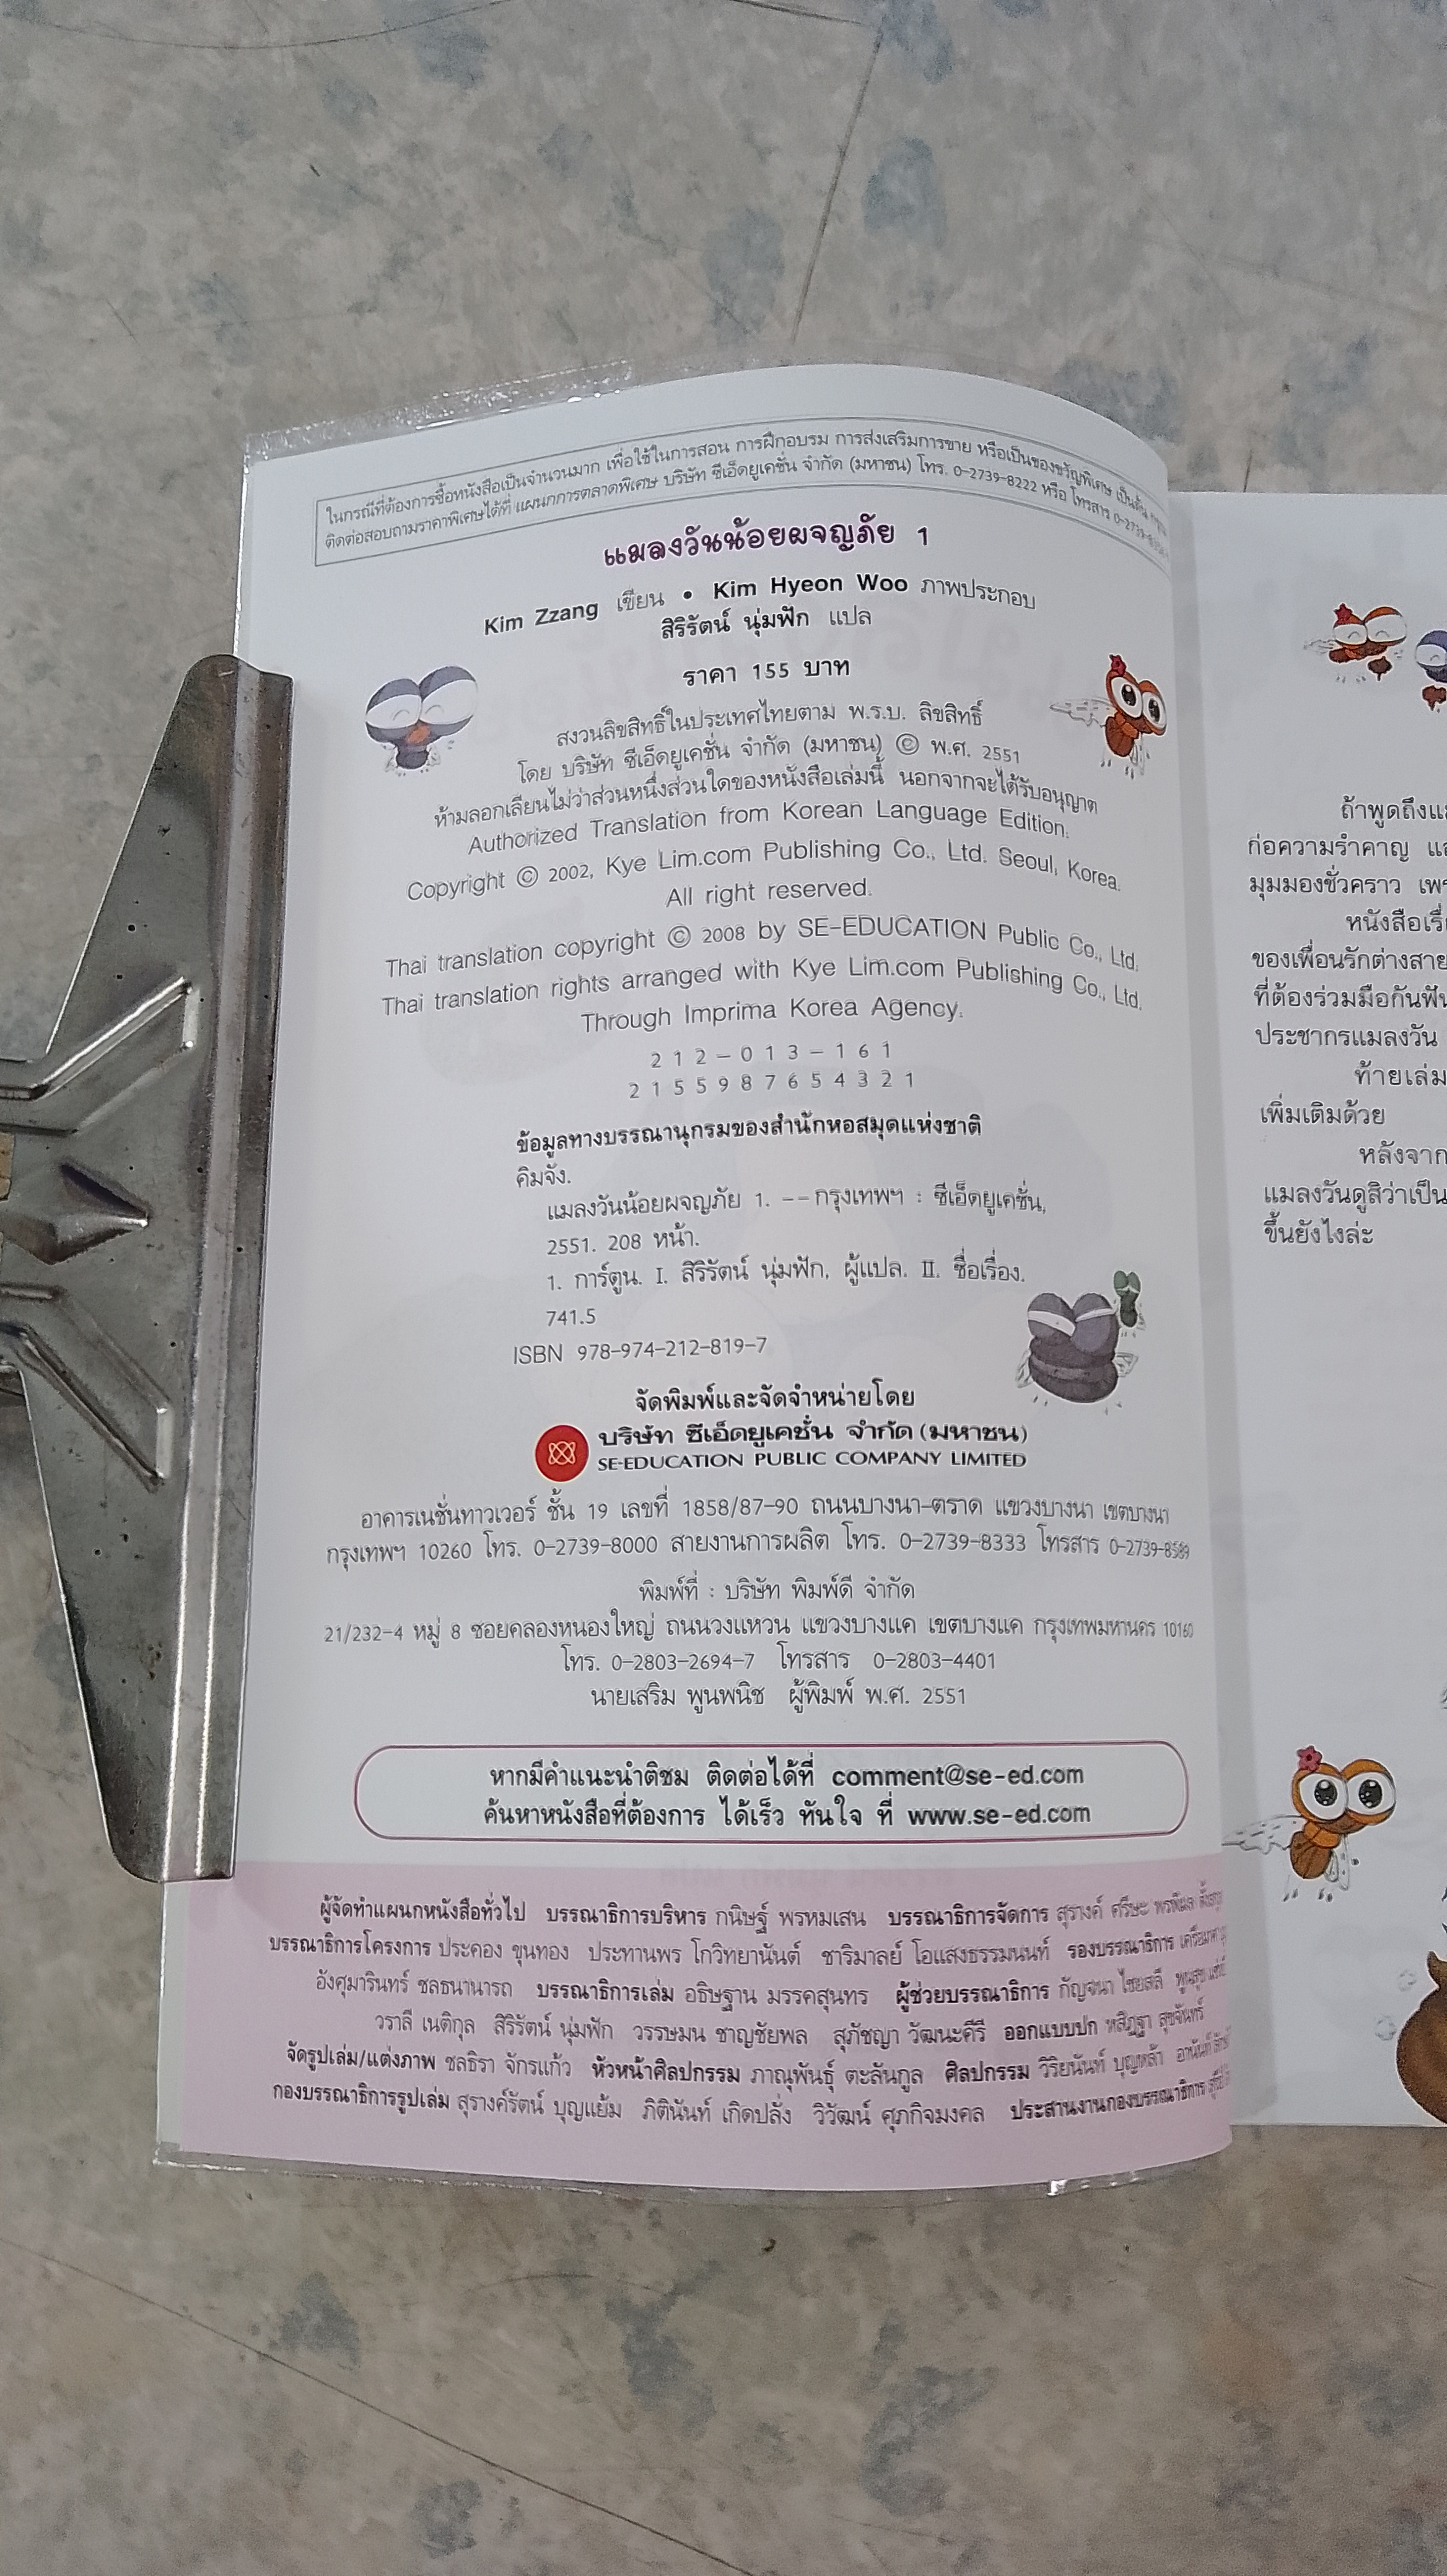 ในกรณีที่ต้องการซื้อหนังสือเป็นจำนวนมาก เพื่อใช้ในการสอน การฝึกอบรม การส่งเสริมการขาย หรือเป็นของขวัญพิเศษ เป็นต้น
ติดต่อสอบถามราคาพิเศษได้ที่ แผนกการตลาดพิเศษ บริษัท ซีเอ็ดยูเคชั่น จำกัด (มหาชน) โทร. 0-2739-8222 หรือ โทรสาร
แมลงวันน้อยผจญภัย 1
Kim Zzang เขียน • Kim Hyeon Woo ภาพประกอบ
สิริรัตน์ นุ่มฟัก แปล
ราคา 155 บาท
สงวนลิขสิทธิ์ในประเทศไทยตาม พ.ร.บ. ลิขสิทธิ์
โดย บริษัท ซีเอ็ดยูเคชั่น จำกัด (มหาชน) © พ.ศ. 2551
ห้ามลอกเลียนไม่ว่าส่วนหนึ่งส่วนใดของหนังสือเล่มนี้ นอกจากจะได้รับอนุญาต
Authorized Translation from Korean Language Edition.
Copyright © 2002, Kye Lim.com Publishing Co., Ltd. Seoul, Korea.
All right reserved.
Thai translation copyright © 2008 by SE-EDUCATION Public Co., Ltd.
Thai translation rights arranged with Kye Lim.com Publishing Co., Ltd.
Through Imprima Korea Agency.
2 1 2 – 0 1 3 – 1 6 1
2 1 5 5 9 8 7 6 5 4 3 2 1
ข้อมูลทางบรรณานุกรมของสำนักหอสมุดแห่งชาติ
คิมจัง.
แมลงวันน้อยผจญภัย 1. --กรุงเทพฯ : ซีเอ็ดยูเคชั่น,
2551. 208 หน้า.
1. การ์ตูน. I. สิริรัตน์ นุ่มฟัก, ผู้แปล. II. ชื่อเรื่อง.
741.5
ISBN 978-974-212-819-7
จัดพิมพ์และจัดจำหน่ายโดย
บริษัท ซีเอ็ดยูเคชั่น จำกัด (มหาชน)
SE-EDUCATION PUBLIC COMPANY LIMITED
อาคารเนชั่นทาวเวอร์ ชั้น 19 เลขที่ 1858/87-90 ถนนบางนา-ตราด แขวงบางนา เขตบางนา
กรุงเทพฯ 10260 โทร. 0-2739-8000 สายงานการผลิต โทร. 0-2739-8333 โทรสาร 0-2739-8589
พิมพ์ที่ : บริษัท พิมพ์ดี จำกัด
21/232-4 หมู่ 8 ซอยคลองหนองใหญ่ ถนนวงแหวน แขวงบางแค เขตบางแค กรุงเทพมหานคร 10160
โทร. 0-2803-2694-7 โทรสาร 0-2803-4401
นายเสริม พูนพนิช ผู้พิมพ์ พ.ศ. 2551
หากมีคำแนะนำติชม ติดต่อได้ที่ comment@se-ed.com
ค้นหาหนังสือที่ต้องการ ได้เร็ว ทันใจ ที่ www.se-ed.com
ผู้จัดทำแผนกหนังสือทั่วไป บรรณาธิการบริหาร กนิษฐ์ พรหมเสน บรรณาธิการจัดการ สุรางค์ ศรีษะ
บรรณาธิการโครงการ ประคอง ขุนทอง ประทานพร โกวิทยานันต์ ชาริมาลย์ โอแสงธรรมนนท์ รองบรรณาธิการ
อังศุมารินทร์ ชลธนานารถ บรรณาธิการเล่ม อธิษฐาน มรรคสุนทร ผู้ช่วยบรรณาธิการ กัญจนา ไชยสลี
วราลี เนติกุล สิริรัตน์ นุ่มฟัก วรรษมน ชาญชัยพล สุภัชญา วัฒนะคีรี ออกแบบปก หสิฎฐา สุขจันทร์
จัดรูปเล่ม/แต่งภาพ ชลธิรา จักรแก้ว หัวหน้าศิลปกรรม ภาณุพันธุ์ ตะลันกูล ศิลปกรรม วิริยนันท์ บุญหล้า
กองบรรณาธิการรูปเล่ม สุรางค์รัตน์ บุญแย้ม ภิตินันท์ เกิดปลั่ง วิวัฒน์ ศุภกิจมงคล ประสานงานกองบรรณาธิการ
ถ้าพูดถึง
ก่อความรำคาญ
มุมมองชั่วคราว
หนังสือ
ของเพื่อนรักต่างสาย
ที่ต้องร่วมมือกัน
ประชากรแมลงวัน
ท้ายเล่ม
เพิ่มเติมด้วย
หลังจาก
แมลงวันดูสิว่าเป็น
ขึ้นยังไงล่ะ